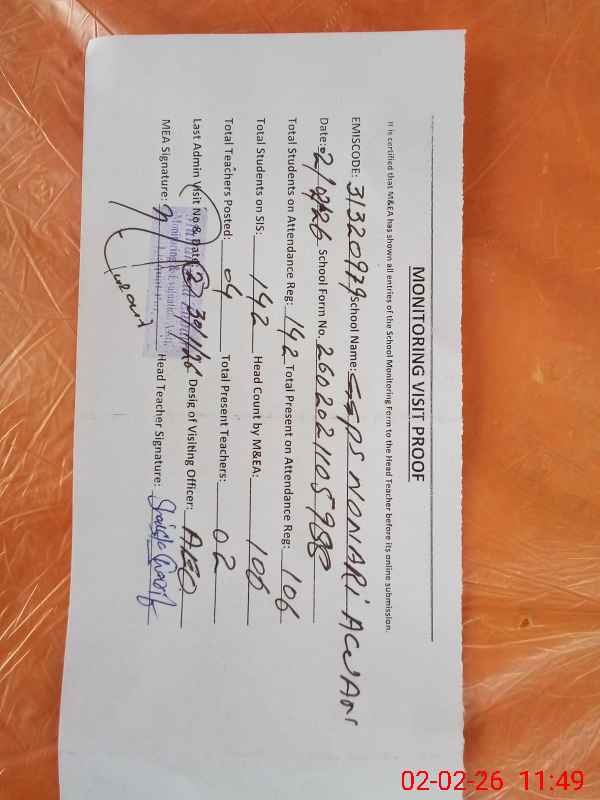 MONITORING VISIT PROOF
It is certified that M&EA has shown all entries of the School Monitoring Form to the Head Teacher before its online submission.
EMISCODE: 31320979 School Name: GGPS NONARI AWAN
Date: 2/2/26 School Form No. 2602021105988
Total Students on Attendance Reg: 142 Total Present on Attendance Reg: 106
Total Students on SIS: 142 Head Count by M&EA: 106
Total Teachers Posted: 04 Total Present Teachers: 02
Last Admin Visit No & Date: (2) 30/1/26 Desig of Visiting Officer: AEO
Monitoring & Evaluation
MEA Signature: Head Teacher Signature:
02-02-26 11:49